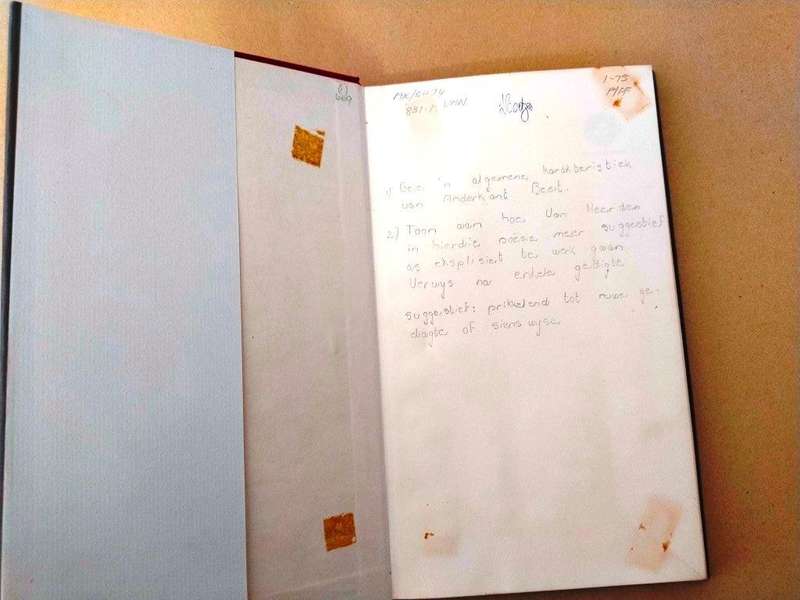 1-75
1) Gee 'n algemene karakteristiek
van Anderkant Besit.
2) Toon aan hoe Van Heerden
in hierdie poësie meer suggestief
as eksplisiet te werk gaan
Verwys na enkele gedigte
suggestief: prikkelend tot nuwe ge-
dagte of sienswyse